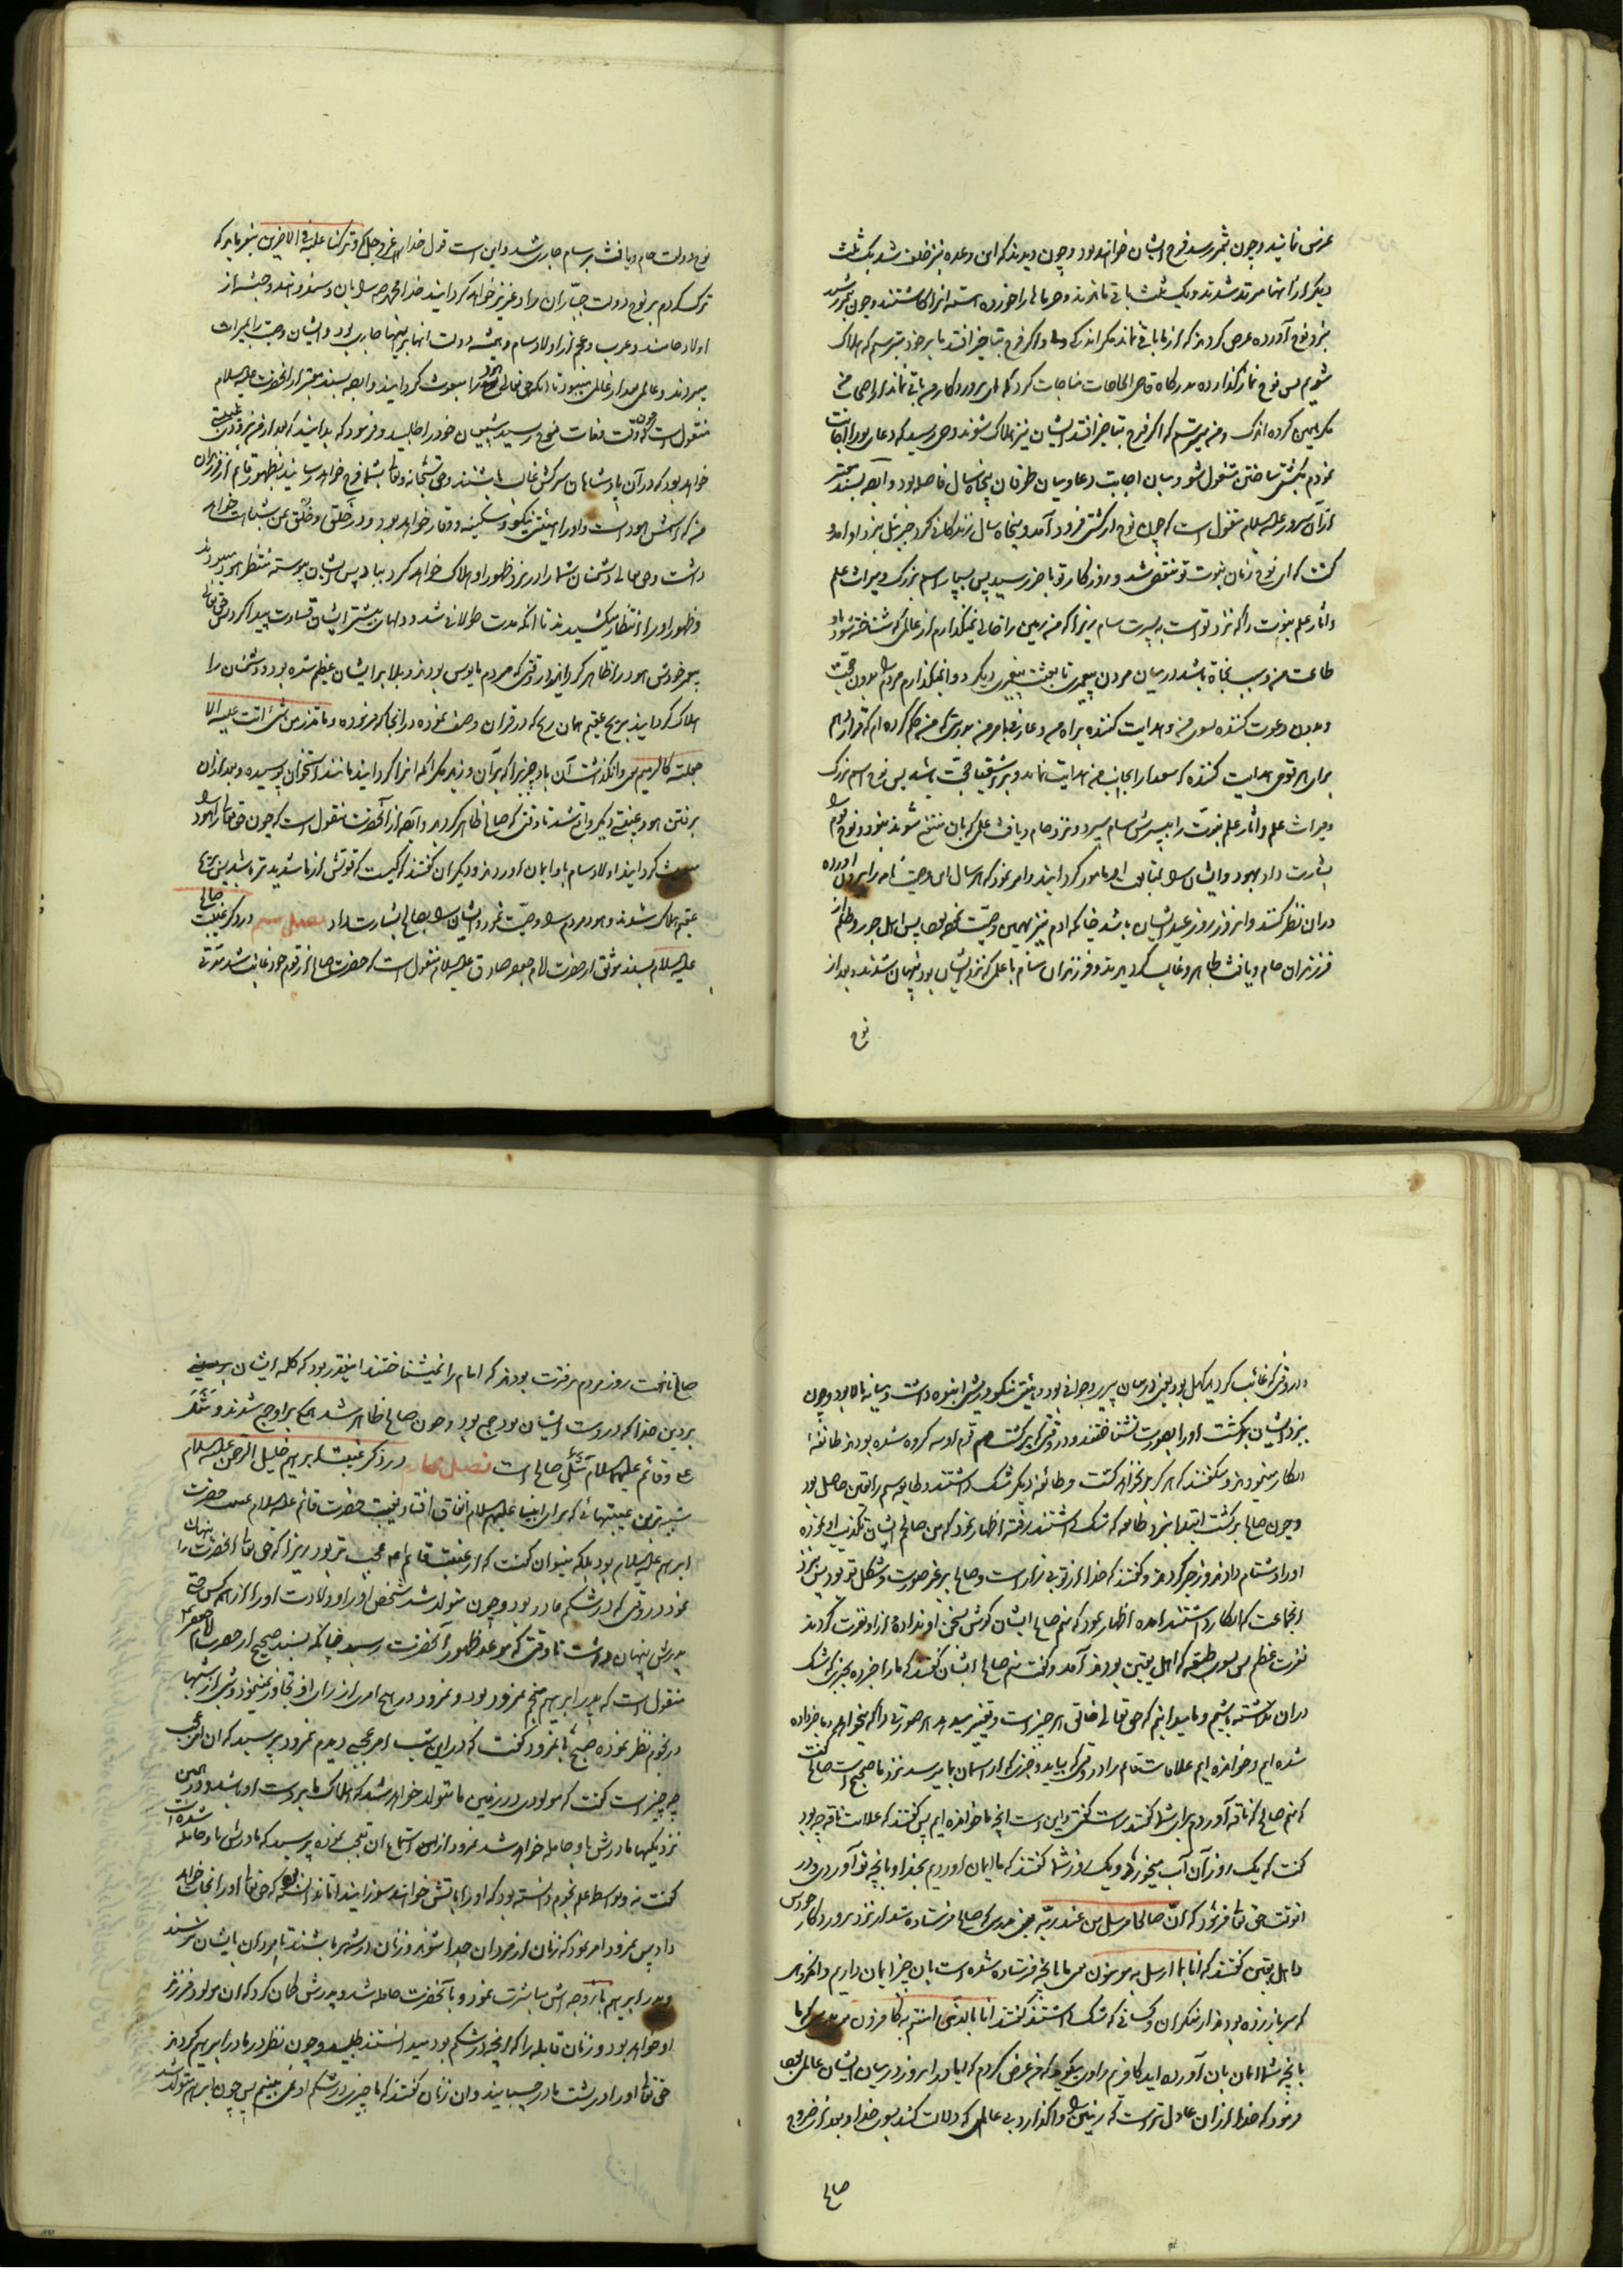 غرس نمائید و چون بثمر رسد فرج ایشان خواهد بود و چون دیدند که این وعده نیز خلف شد یک ثلث
دیگر از آنها مرتد شدند و یک ثلث باقی ماندند و خرماها را خورده هسته آنرا کاشتند و چون بثمر رسید
بنزد نوح آورده عرض کردند که از ما باقی نماند مگر اندکی و اگر فرج بتاخیر افتد ما بر خود میترسیم که هلاک
شویم پس نوح نماز گذارده بدرگاه قاضی الحاجات مناجات کرد که ای پروردگار من باقی نماند از اصحاب من
مگر همین گروه اندک و من میترسم که اگر فرج بتاخیر افتد ایشان نیز هلاک شوند وحی رسید که دعای تو را اجابت
نمودم بکشتی ساختن مشغول شو و میان اجابت دعا و میان طوفان پنجاه سال فاصله بود و ایضا بسند معتبر
از آن سرور علیه السلام منقول است که چون نوح از کشتی فرود آمد و پنجاه سال زندگانی کرد جبرئیل بنزد او آمد و
گفت که ای نوح زمان نبوت تو منقضی شد و روزگار تو باخر رسید پس بسپار اسم بزرگ و میراث علم
و آثار علم نبوت را که نزد تو است به پسرت سام زیرا که من زمین را خالی نمیگذارم از عالمی که شناخته شود باو
طاعت من و سبب نجاة باشد در میان مردن پیغمبری تا بعثت پیغمبر دیگر و وانمیگذارم مردم را بدون حجت
و بدون دعوت کننده بسوی من و هدایت کننده براه من و عارف بامر من بدرستی که من حکم کرده ام که قرار دهم
برای هر قومی هدایت کننده که سعدا را بجانب من هدایت نماید و بر اشقیا حجت باشد پس نوح اسم بزرگ
و میراث علم و آثار علم نبوت را به پسرش سام سپرد و نزد حام و یافث علمی که بان منتفع شوند نبود و نوح قوم را
بشارت داد بهود و ایشان را بمتابعت او مامور گردانید و امر نمود که هر سال این وصیت نامه را بیرون آورده
در آن نظر کنند و آن روز روز عید ایشان باشد چنانکه آدم نیز بهمین وصیت نموده بود پس اهل جور و ظلم از
فرزندان حام و یافث ظاهر و غالب گردیدند و فرزندان سام با علمی که نزد ایشان بود پنهان شدند و بعد از
نوح
نوح دولت حام و یافث بر سام جاری شد و این است قول خدای عز و جل که وترکنا علیه فی الآخرین میفرماید که
ترک کردم بر نوح دولت جباران را و عزیز خواهد گردانید خدا محمد را بان و سند و هند و حبشه از
اولاد حامند و عرب و عجم از اولاد سام و همیشه دولت آنها بر اینها جاری بود و ایشان وصیت را بمیراث
میبردند و عالمی بعد از عالمی میبود تا آنکه حق تعالی هود را مبعوث گردانید و ایضا بسند معتبر از آنحضرت علیه السلام
منقول است که چون وقت وفات نوح رسید شیعیان خود را طلبید و فرمود که بدانید که بعد از من بزودی غیبت
خواهد بود که در آن پادشاهان سرکش غالب باشند و حق سبحانه و تعالی بشما فرج خواهد رسانید بظهور قائم از فرزندان
من که اسمش هود است و او را هیئتی نیکو و سکینه و وقار خواهد بود و در خَلق و خُلق بمن شباهت خواهد
داشت و حق تعالی دشمنان شما را در نزد ظهور او هلاک خواهد کرد بباد پس ایشان پیوسته منتظر هود میبودند
و ظهور او را انتظار میکشیدند تا آنکه مدت طولانی شد و دلهای بیشتر ایشان قساوت پیدا کرد پس حق تعالی
پیغمبر خودش هود را ظاهر گردانید در وقتی که مردم مایوس بودند و بلا بر ایشان عظیم شده بود و دشمنان را
هلاک گردانید بریح عقیم همان ریح که در قرآن وصف نموده در آنجا که فرموده و ما تذر من شیء اتت علیه الا
جعلته کالرمیم یعنی وانگذاشت آن باد چیزی را که بر آن وزید مگر آنکه آنرا گردانید مانند استخوان پوسیده و بعد از آن
برفتن هود غیبتی دیگر واقع شد تا وقتی که صالح ظاهر گردید و ایضا از آنحضرت منقول است که چون حق تعالی هود را
مبعوث گردانید اولاد سام باو ایمان آوردند و دیگران گفتند که کیست که قوتش از ما شدیدتر باشد پس بریح
عقیم هلاک شدند و هود مردم را وصیت نمود و ایشان را بصالح بشارت داد فصل سیم در ذکر غیبت صالح
علیه السلام بسند موثق از حضرت امام جعفر صادق علیه السلام منقول است که حضرت صالح از قوم خود غایب شد مدتی
و در وقتی که غائب گردید کهل بود یعنی در میان پیری و جوانی بود و هیئتی نیکو و ریش انبوه داشت و میانه بالا بود و چون
بنزد ایشان برگشت او را بصورت نشناختند و در وقتی که برگشت قوم او سه گروه شده بودند طائفه
انکار مینمودند و میگفتند که هرگز بر نخواهد گشت و طائفه دیگر شک داشتند و طایفه سیم را یقین حاصل بود
و چون صالح برگشت ابتدا بنزد طائفه که شک داشتند رفته اظهار نمود که من صالحم ایشان تکذیب او نموده
او را دشنام دادند و زجر کردند و گفتند که خدا از تو بیزار است و صالح بر غیر صورت و شکل تو بود پس بنزد
آنجماعت که انکار داشتند آمده اظهار نمود که منم صالح ایشان گوش بسخن او نداده از او نفرت کردند
نفرت عظیم پس بسوی طبقه که اهل یقین بودند آمد و گفت منم صالح ایشان گفتند که ما را خبر ده بچیزی که شک
در آن نداشته باشیم و ما میدانیم که حق تعالی خالق هر چیز است و تغییر میدهد هر صورتی را که میخواهد و ما خبر داده
شده ایم و خوانده ایم علامات قائم را در وقتی که بیاید و خبری که از آسمان بما برسد نزد ما صحیح است صالح گفت
که منم صالح که ناقه آوردم برای شما گفتند راست گفتی و این است آنچه ما خوانده ایم پس گفتند که علامت ناقه چه بود
گفت که یک روز آن آب میخورد و یک روز شما گفتند که ما ایمان آوردیم بخدا و بآنچه تو آوردی و در
آنوقت حق تعالی فرمود که انّ صالحا مرسل من عند ربّه یعنی بدرستی که صالح فرستاده شد از نزد پروردگار خودش
و اهل یقین گفتند که انا بما ارسل به مؤمنون یعنی ما بآنچه فرستاده شده است بان چیز ایمان داریم و آنگروهی
که سر باز زده بودند از منکران و کسانی که شک داشتند گفتند انا بالذی امنتم به کافرون یعنی بدرستی که ما
بآنچه شما ایمان بان آورده اید کافریم راوی میگوید که من عرض کردم که آیا در آن روز در میان ایشان عالمی بود
فرمود که خدا از آن عادل تر است که زمین را واگذارد بی عالمی که دلالت کند بسوی خدا و بعد از خروج
صالح
صالح تا هفت روز مردم بر فترت بودند که امام را نمیشناختند اینقدر بود که کلمه ایشان
بر دین خدا که در دست ایشان بود جمع بود و چون صالح ظاهر شد همگی بر او جمع شدند و مَثَل
علی و قائم علیهما السلام مَثَل صالح است فصل چهارم در ذکر غیبت ابراهیم خلیل الرحمن علیه السلام
شبیه ترین غیبتهائی که برای انبیا علیهم السلام اتفاق افتاد بغیبت حضرت قائم علیه السلام غیبت حضرت
ابراهیم علیه السلام بود بلکه میتوان گفت که از غیبت قائم عجیب تر بود زیرا که حق تعالی آنحضرت را پنهان
نمود در وقتی که در شکم مادر بود و چون متولد شد شخص او را و ولادت او را از همه کس حتی
پدرش پنهان داشت تا وقتی که موعد ظهور آنحضرت رسید چنانکه بسند صحیح از حضرت امام جعفر
منقول است که پدر ابراهیم منجم نمرود بود و نمرود در هیچ امری از رای او تجاوز نمینمود و شبی از شبها
در نجوم نظر نموده صبح با نمرود گفت که در این شب امر عجبی دیدم نمرود پرسید که آن امر عجیب
چه چیز است گفت که مولودی در زمین ما متولد خواهد شد که هلاک ما بر دست او باشد و در همین
نزدیکیها مادرش باو حامله خواهد شد نمرود از استماع آن تعجب نموده پرسید که مادرش باو حامله شده است
گفت نه و بواسطه علم نجوم دانسته بود که او را بآتش خواهند سوزانید اما ندانسته بود که حق تعالی او را نجات خواهد
داد پس نمرود امر نمود که زنان از مردان جدا شوند و زنان در شهر باشند تا مردان بایشان نرسند
و پدر ابراهیم با زوجه اش مباشرت نمود و بآنحضرت حامله شد و پدرش گمان کرد که آن مولود فرزند
او خواهد بود و زنان قابله را که آنچه در شکم بود میدانستند طلبید و چون نظر در مادر ابراهیم کردند
حق تعالی او را در پشت مادر چسبانید و آن زنان گفتند که ما چیزی در شکم او نمی بینیم پس چون ابراهیم متولد شد